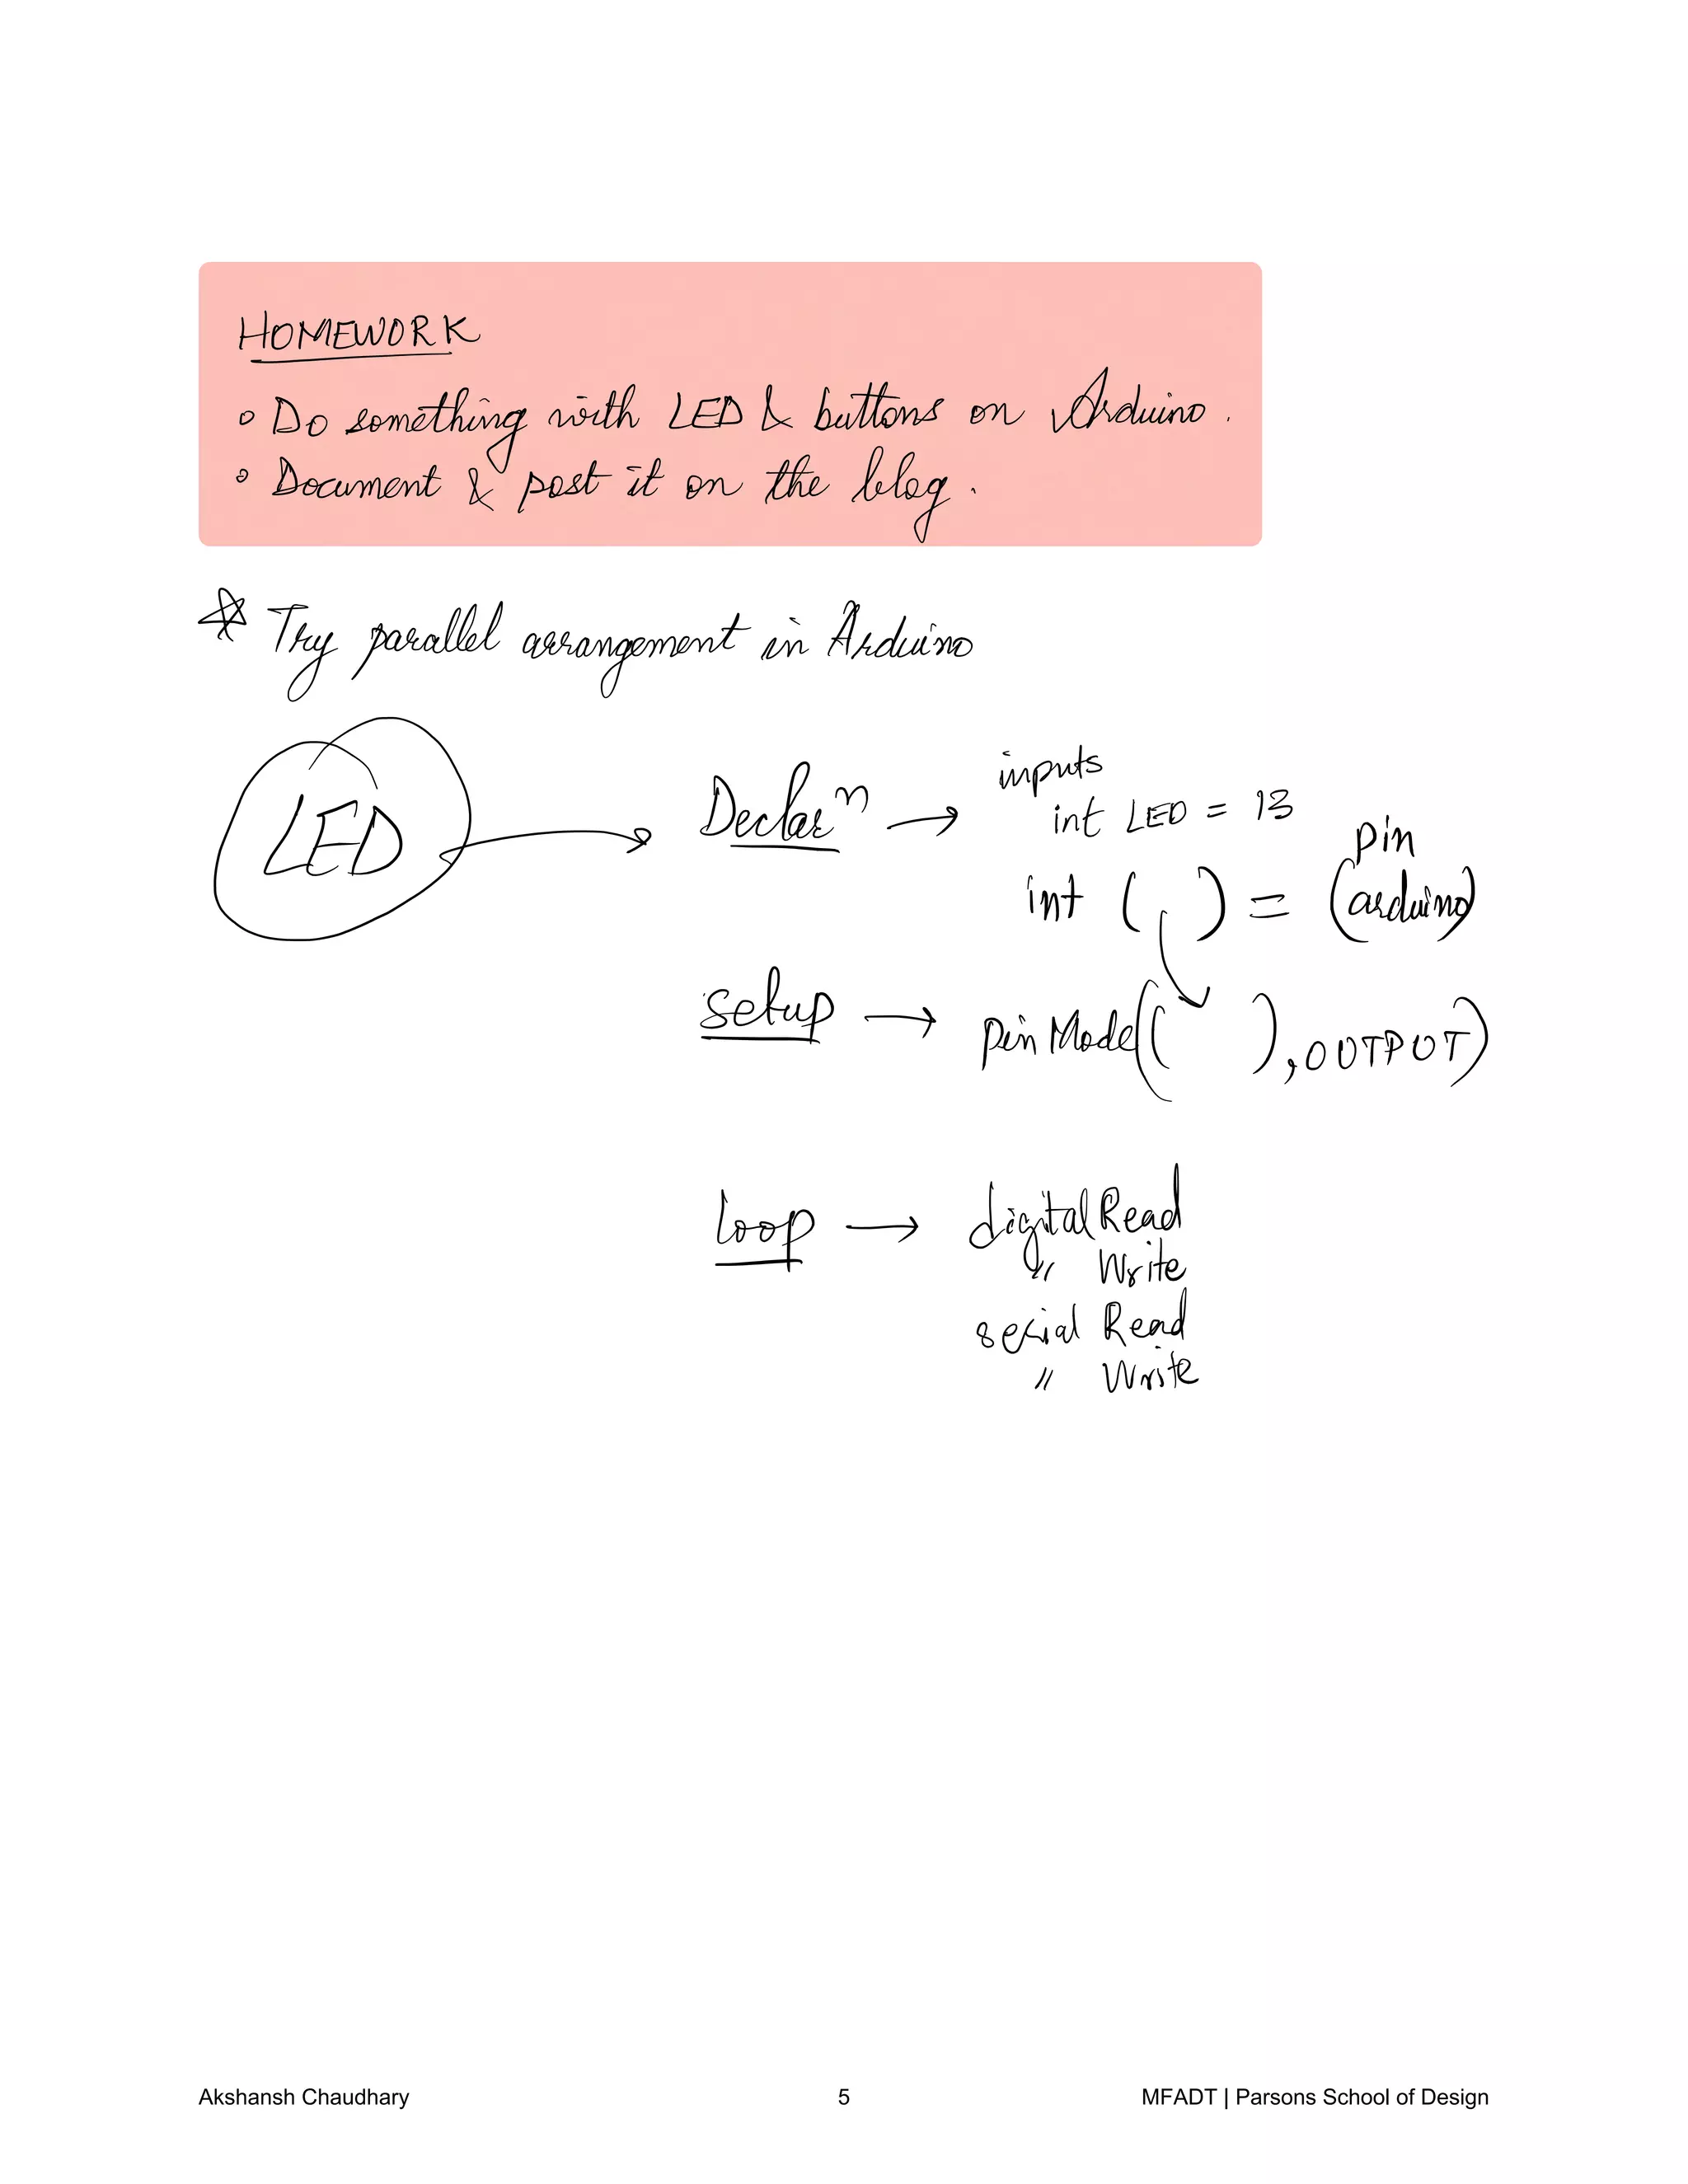 HOMEWORK
◦ Do something with LED & buttons on Arduino.
◦ Document & post it on the blog.
☆ Try parallel arrangement in Arduino
LED → Declarⁿ → inputs
int LED = 13
int ( ) = (pin arduino)
setup → pinMode(( ), OUTPUT)
loop → digital Read
〃 Write
serial Read
〃 Write
Akshansh Chaudhary 5 MFADT | Parsons School of Design